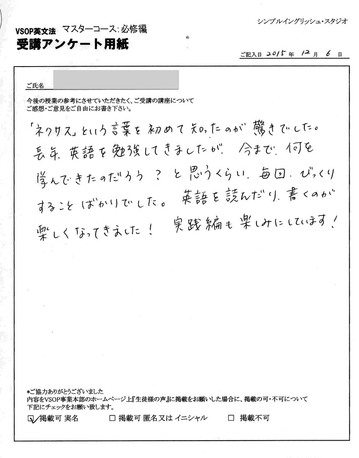 シンプルイングリッシュ・スタジオ
VSOP英文法 マスターコース:必修編
受講アンケート用紙
ご記入日 2015年 12月 6日
ご氏名
今後の授業の参考にさせていただきたく、ご受講の講座について
ご感想・ご意見をご自由にお書き下さい。
「ネクサス」という言葉を初めて知ったのが驚きでした。
長年、英語を勉強してきましたが、今まで、何を
学んできたのだろう?と思うくらい、毎回、びっくり
することばかりでした。英語を読んだり、書くのが
楽しくなってきました! 実践編も楽しみにしています!
*ご協力ありがとうございました
内容をVSOP事業本部のホームページ上『生徒様の声』に掲載をお願いした場合に、掲載の可・不可について
下記にチェックをお願い致します。
☑掲載可 実名 □ 掲載可 匿名又は イニシャル □ 掲載不可